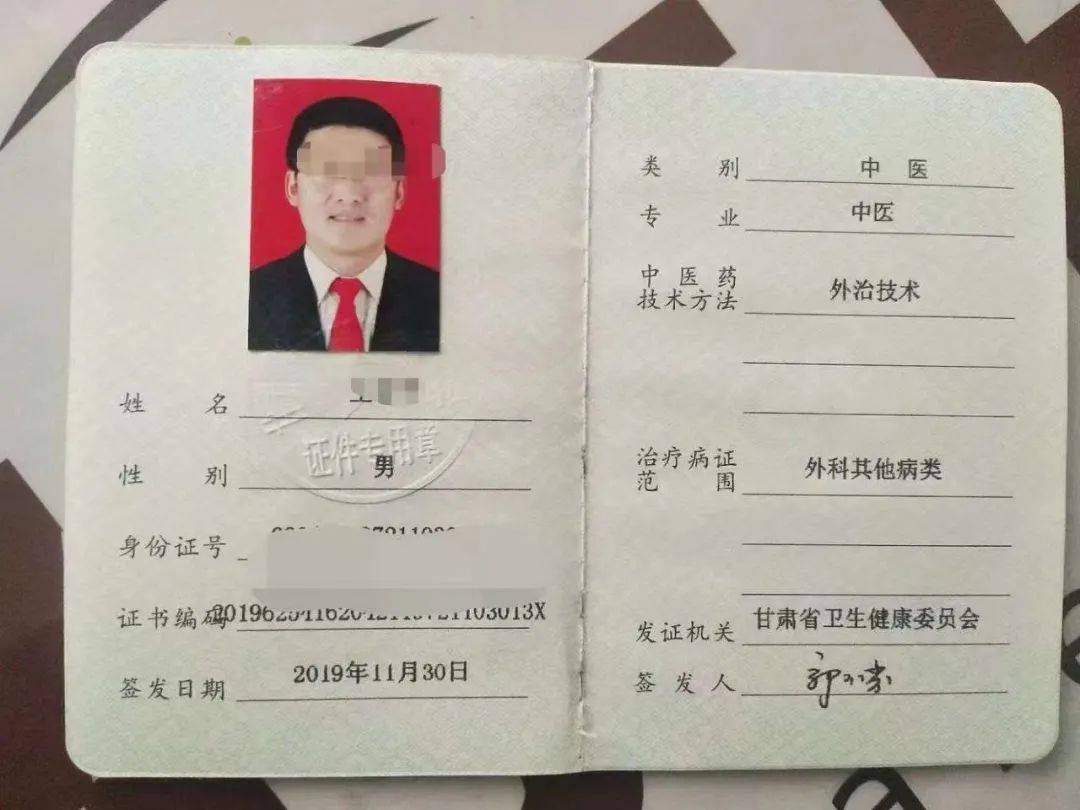 姓名
证件专用章
性别 男
身份证号
证书编码
签发日期 2019年11月30日
类别 中医
专业 中医
中医药
技术方法 外治技术
治疗病证
范围 外科其他病类
发证机关 甘肃省卫生健康委员会
签发人